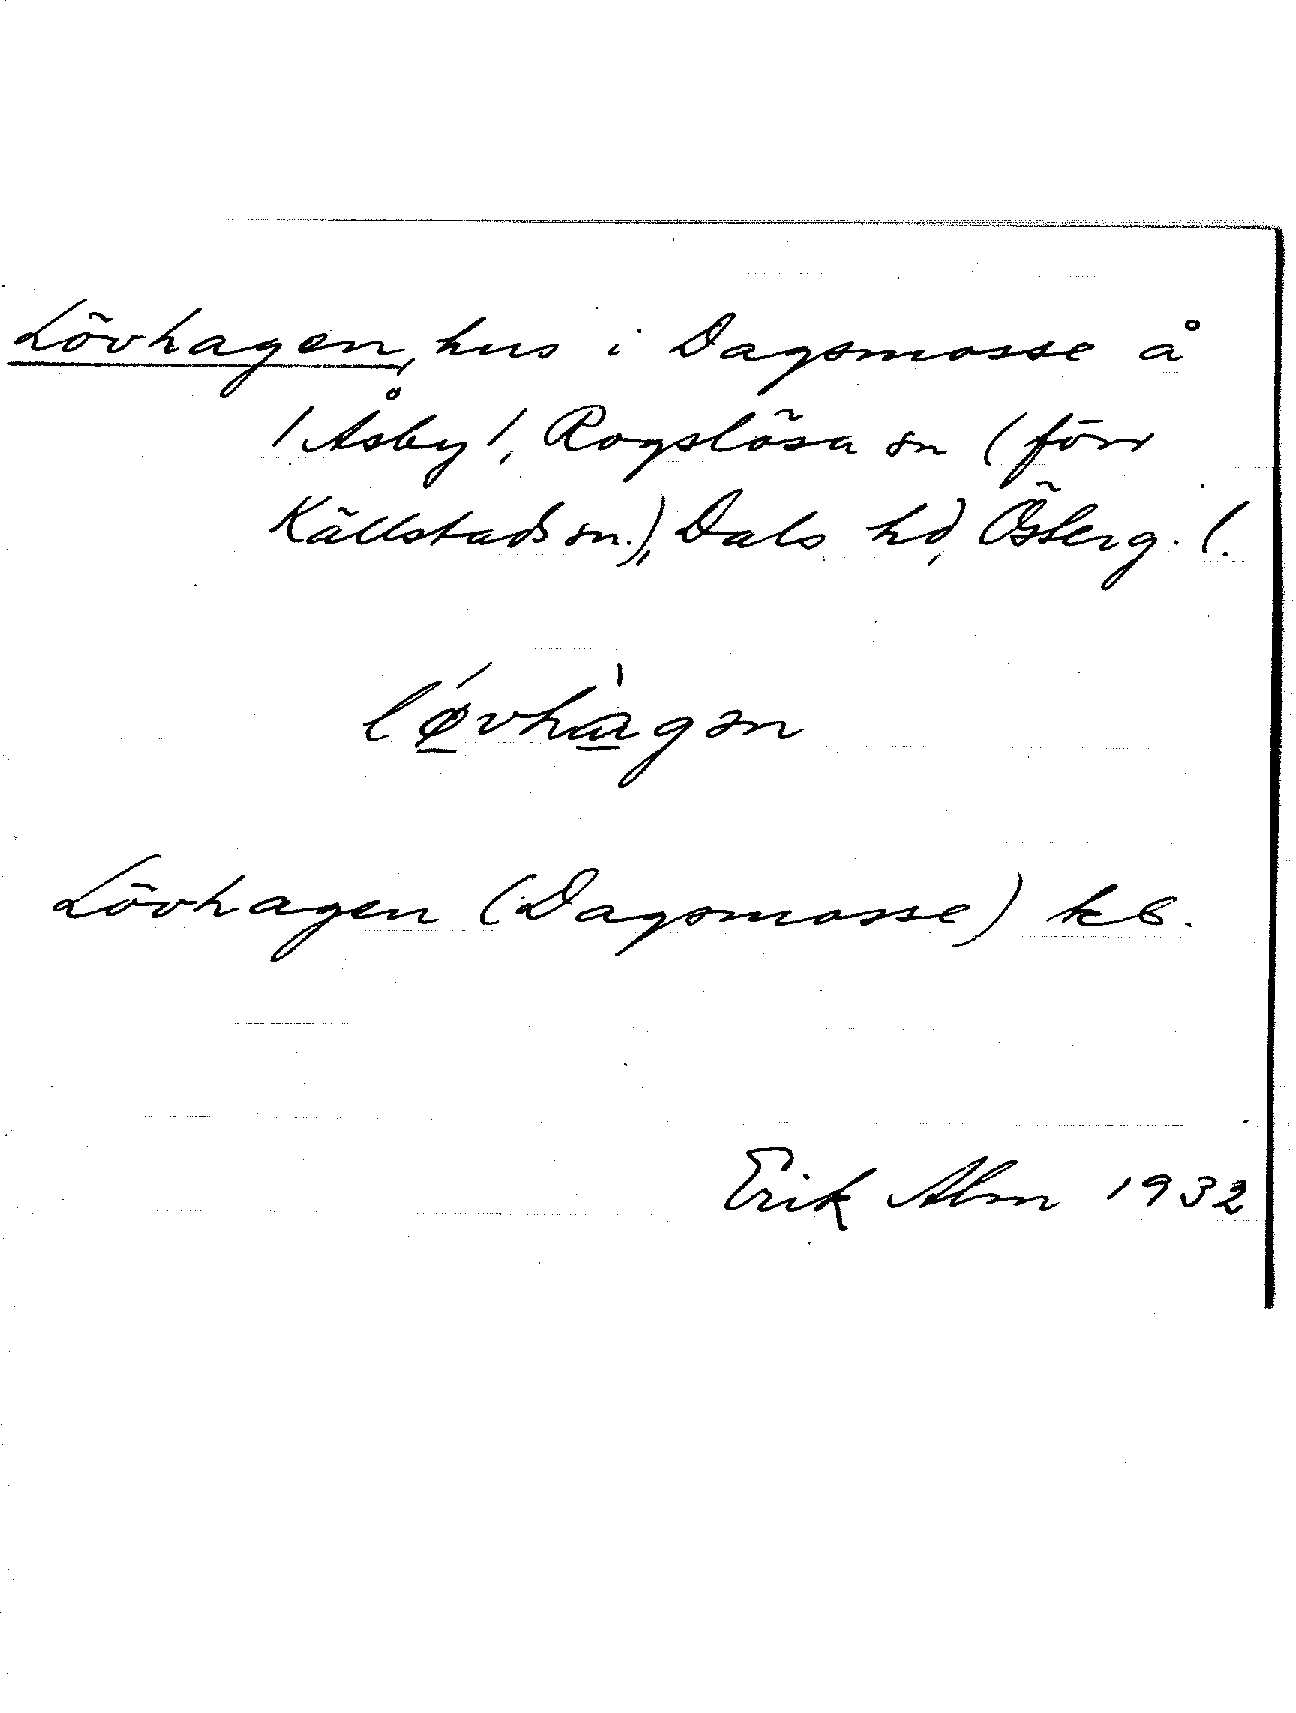 Lövhagen, hus i Dagsmosse å
/Åsby/, Rogslösa sn (förr
Källstads sn.), Dals hd, Österg. l.
lǿvhàgən
Lövhagen (Dagsmosse) kb.
Erik Alm 1932